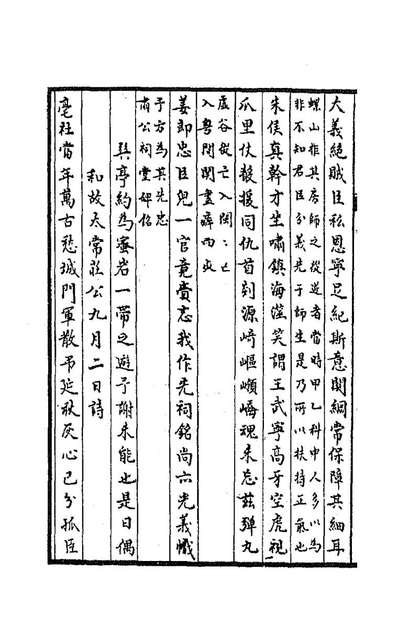 大義絕賊臣私恩寧足紀斯意関綱常保障其細耳
螺山指其房師之從逆者當時甲乙科中人多以為
非不知君臣分義先于師生是乃可以扶持正氣也
朱侯真幹才坐嘯鎮海澨笑謂王武寧高牙空虎視
爪里仗鼓援同仇首剡源崎嶇嶺嶠魂未忘茲彈丸
虛谷從亡入閩閩亡
入粵間関盡瘁而死
姜郎忠臣兒一官竟賫志我作先祠銘尚六先義幟
予方為其先忠
肅公祠堂碑銘
與亭約為寒岩一帶之遊予謝未能也是日偶
和故太常莊公九月二日詩
亳社當年萬古愁城門軍散弔延秋灰心已分孤臣